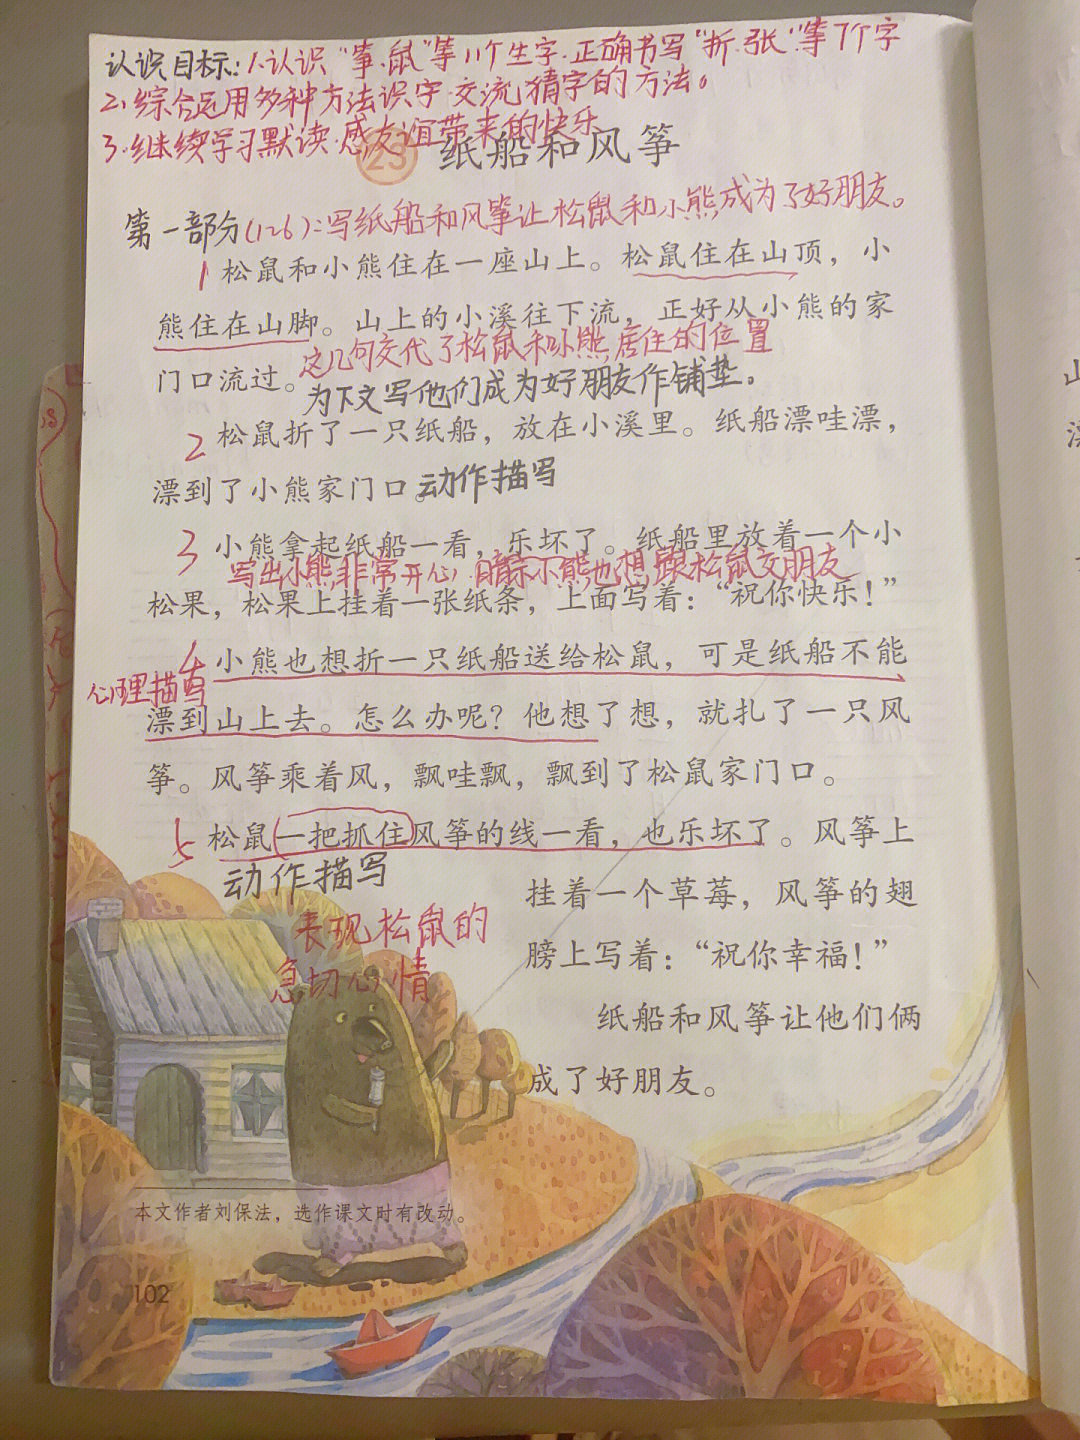 认识目标:1.认识“筝、鼠”等11个生字.正确书写“折.张”等7个字
2.综合运用多种方法识字.交流猜字的方法。
3.继续学习默读.感友谊带来的快乐
23 纸船和风筝
第一部分(1-6):写纸船和风筝让松鼠和小熊成为了好朋友。
1 松鼠和小熊住在一座山上。松鼠住在山顶，小
熊住在山脚。山上的小溪往下流，正好从小熊的家
这几句交代了松鼠和小熊居住的位置
门口流过。
为下文写他们成为好朋友作铺垫。
2 松鼠折了一只纸船，放在小溪里。纸船漂哇漂，
漂到了小熊家门口。动作描写
3 小熊拿起纸船一看，乐坏了。纸船里放着一个小
写出小熊非常开心.暗示小熊也想跟松鼠交朋友
松果，松果上挂着一张纸条，上面写着：“祝你快乐！”
4 小熊也想折一只纸船送给松鼠，可是纸船不能
心理描写
漂到山上去。怎么办呢？他想了想，就扎了一只风
筝。风筝乘着风，飘哇飘，飘到了松鼠家门口。
5 松鼠一把抓住风筝的线一看，也乐坏了。风筝上
动作描写
挂着一个草莓，风筝的翅
表现松鼠的
膀上写着：“祝你幸福！”
急切心情
纸船和风筝让他们俩
成了好朋友。
本文作者刘保法，选作课文时有改动。
102